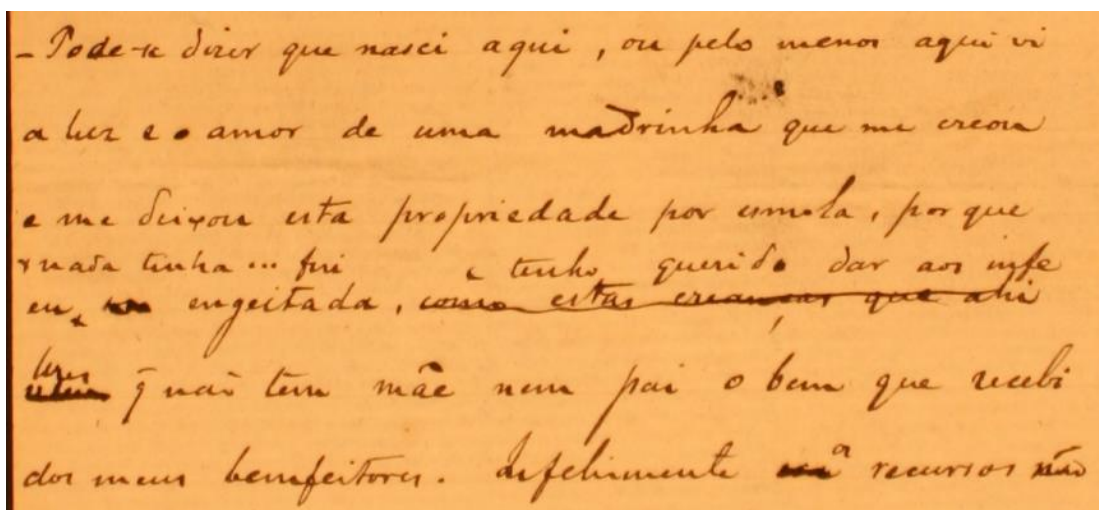 - Pode-se dizer que nasci aqui, ou pelo menos aqui vi
a luz e o amor de uma madrinha que me creou
e me deixou esta propriedade por esmola, porque
nada tinha ... fui e tenho querido dar aos infe
eu, engeitada, como estas creanças que ahi
lizes
q̃ não tem mãe nem pai o bem que recebi
dos meus bemfeitores. Infelizmente os recursos não